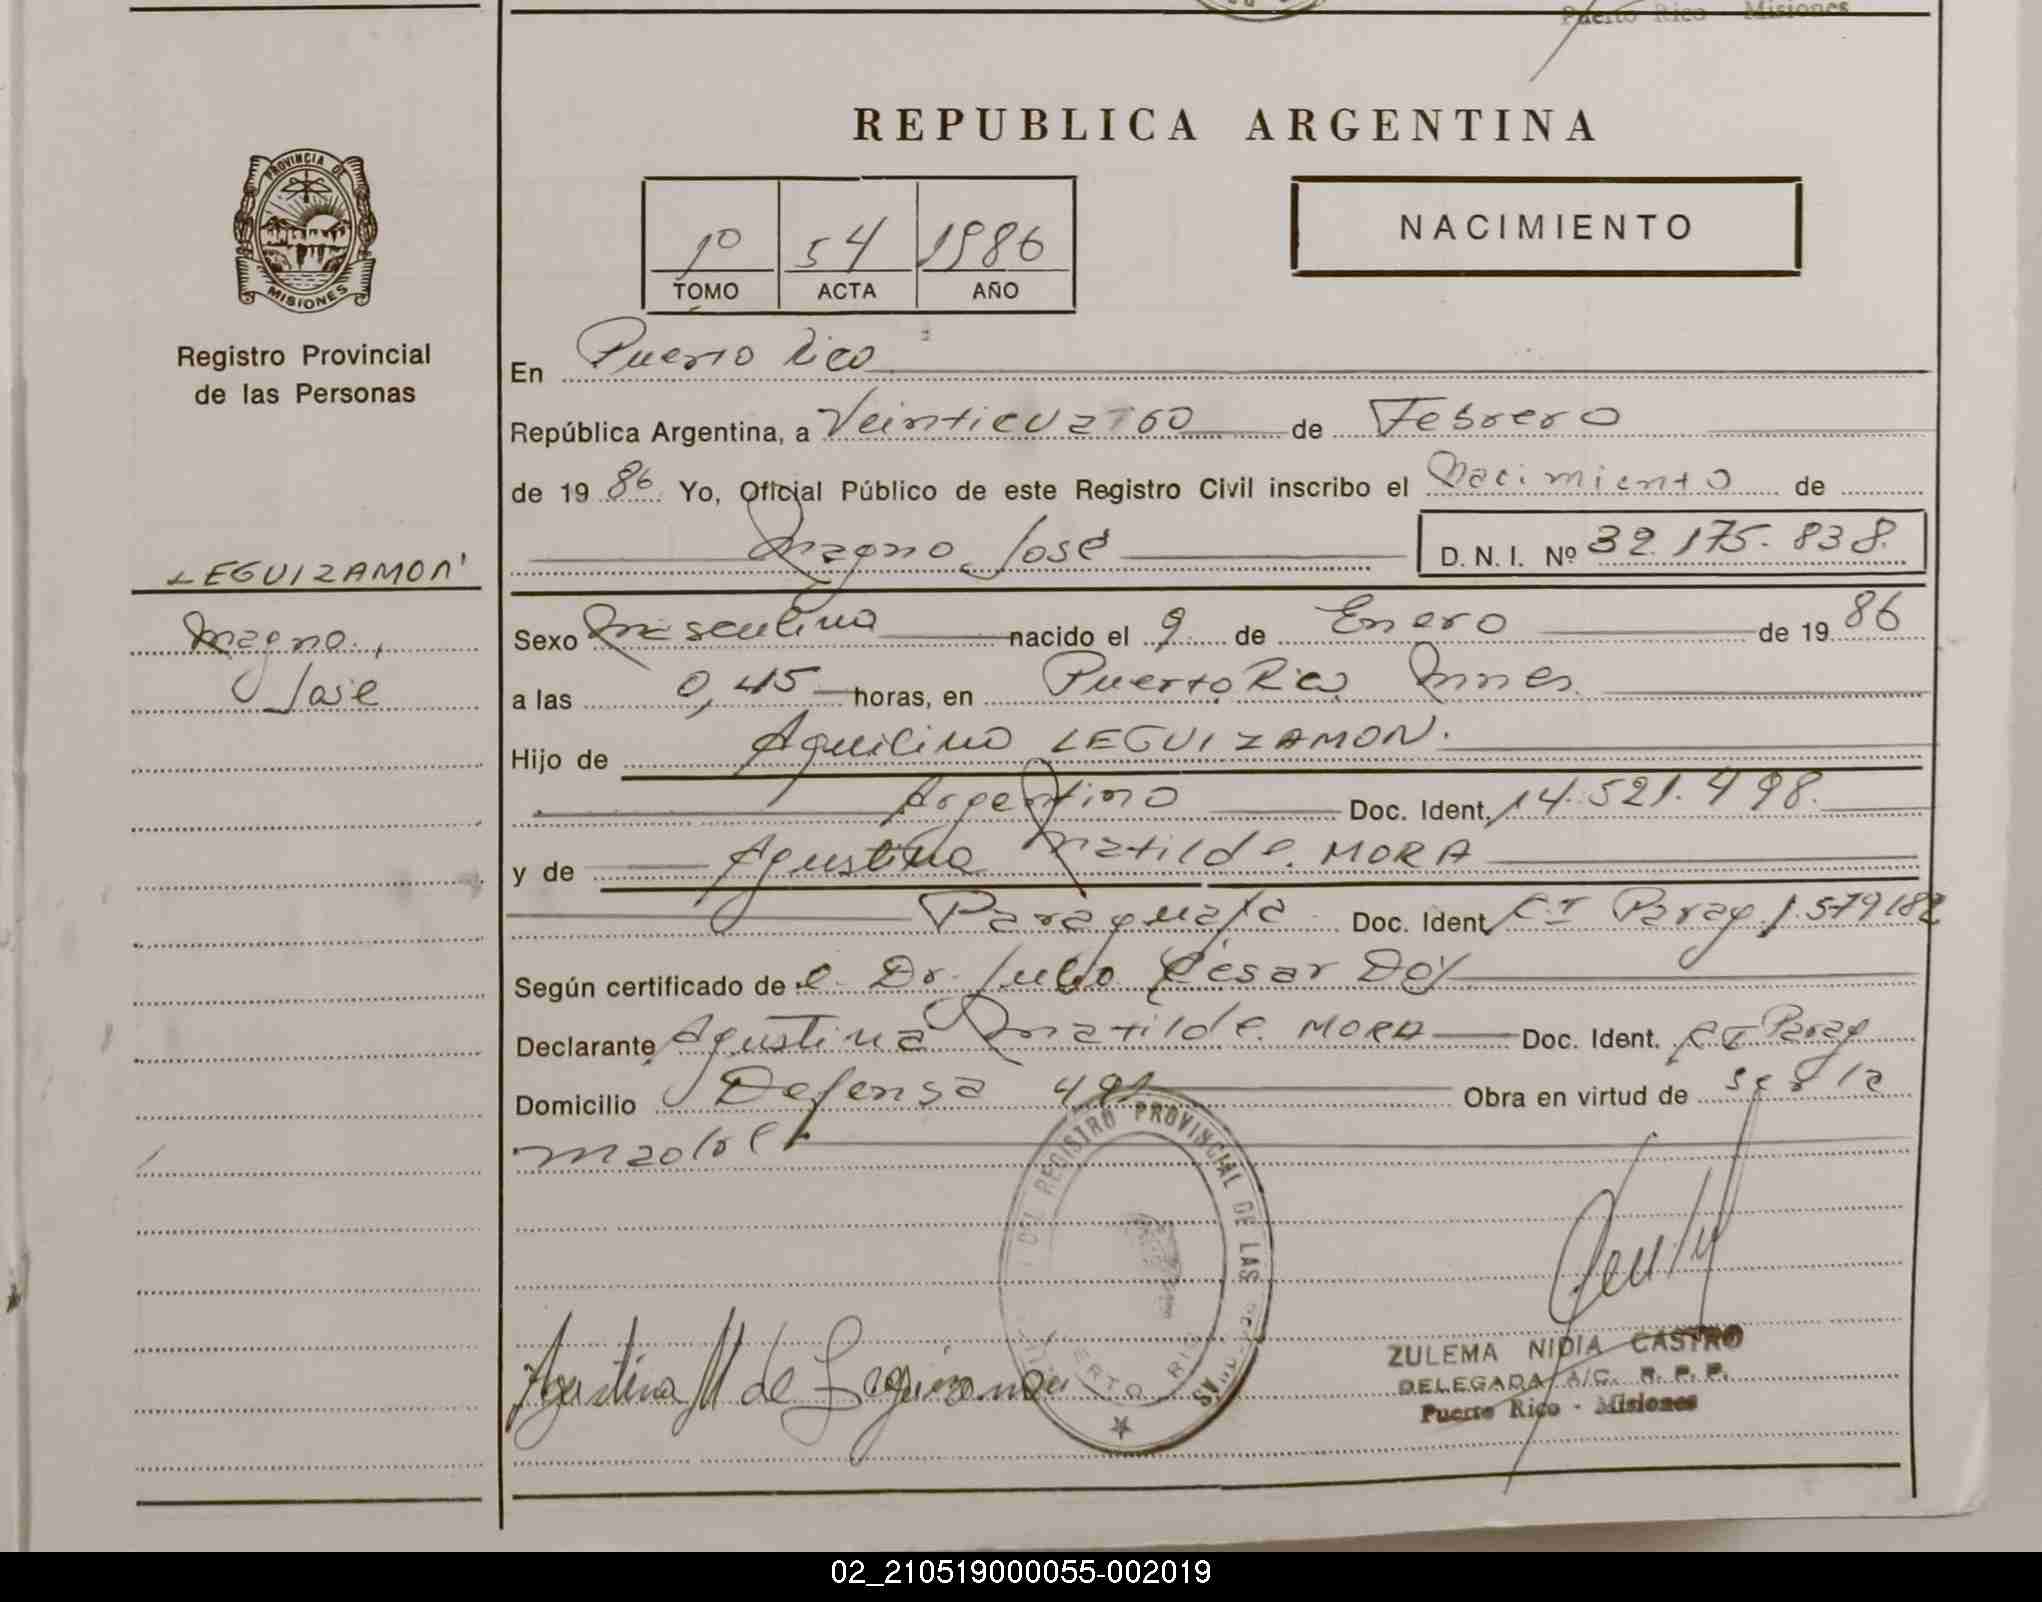 Puerto Rico - Misiones
REPUBLICA ARGENTINA
PROVINCIA DE
MISIONES
Registro Provincial
de las Personas
1º 54 1986
TOMO ACTA AÑO
NACIMIENTO
En Puerto Rico
República Argentina, a Veinticuatro de Febrero
de 19 86 Yo, Oficial Público de este Registro Civil inscribo el Nacimiento de
Magno José D. N. I. Nº 32.175.838
LEGUIZAMON
Magno,
José
Sexo Masculino nacido el 9 de Enero de 19 86
a las 0,45 horas, en Puerto Rico Mnes.
Hijo de Aquilino LEGUIZAMON.
Argentino Doc. Ident. 14.521.498.
y de Agustina Matilde MORA
Paraguaya Doc. Ident C.I Parag 1.579182
Según certificado de el Dr. Julio César Doy
Declarante Agustina Matilde MORA Doc. Ident. C I Parag
Domicilio Defensa 491 Obra en virtud de ser la
madre
DEL REGISTRO PROVINCIAL DE LAS
PUERTO RICO
Agustina M de Leguizamon
ZULEMA NIDIA CASTRO
DELEGADA A/C. R. P. P.
Puerto Rico - Misiones
02_210519000055-002019